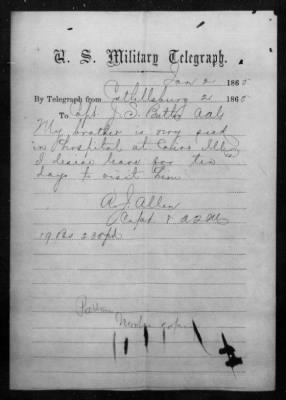 U. S. Military Telegraph.
Jan 2 1865
By Telegraph from Catlettsburg 2 1865
To Capt. J. S. Butler AAG
My brother is very sick
in hospital at Cairo Illinois
I desire leave for ten
days to visit him
A. J. Allen
Capt & A Q M
19 Pd 230pd